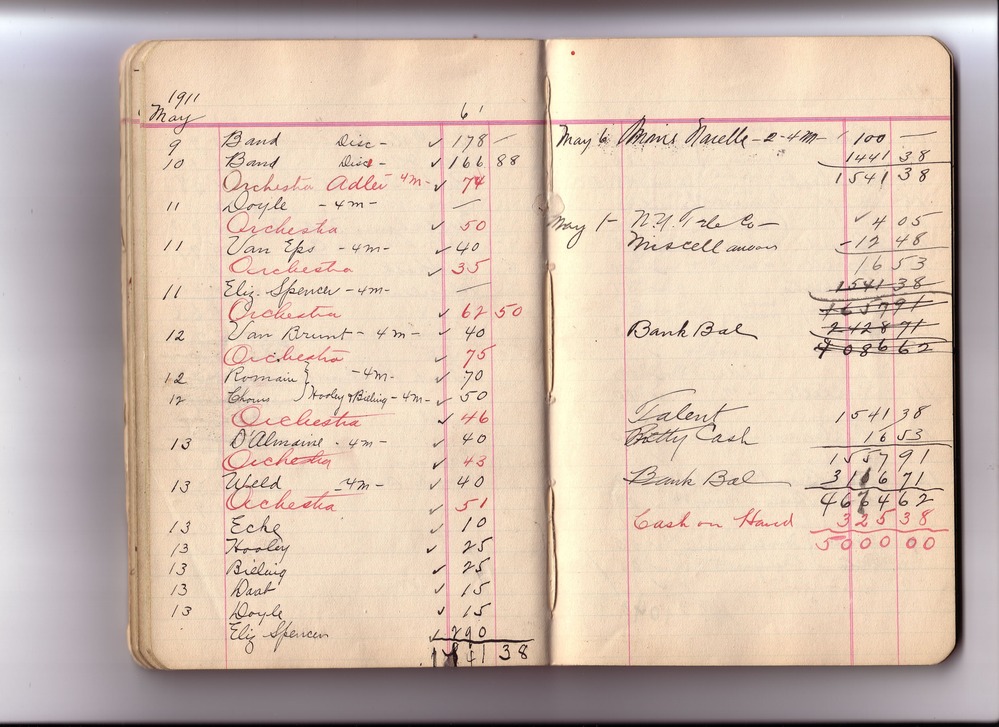 1911
May 6'
9 Band Disc - ✓ 178 -
10 Band Disc - ✓ 166 88
Orchestra Adler 4m - ✓ 74
11 Doyle - 4m - —
Orchestra ✓ 50
11 Van Eps - 4m - ✓ 40
Orchestra ✓ 35
11 Eliz. Spencer - 4m - —
Orchestra ✓ 62 50
12 Van Brunt - 4m - ✓ 40
Orchestra ✓ 75
12 Romain } - 4m - ✓ 70
12 Chorus } Hooley & Billing - 4m - ✓ 50
Orchestra ✓ 46
13 D'Almaine - 4m - ✓ 40
Orchestra ✓ 43
13 Weld - 4m - ✓ 40
Orchestra ✓ 51
13 Eche ✓ 10
13 Hooley ✓ 25
13 Billing ✓ 25
13 Daab ✓ 15
13 Doyle ✓ 15
Eliz Spencer ✓ 290
41 38
May 6 - 2 - 4m - 100 —
1441 38
1541 38
May 1 - N.Y. Tele Co - ✓ 4 05
Miscellaneous - 12 48
16 53
1541 38
1657 91
Bank Bal 2428 71
4086 62
Talent 1541 38
Petty Cash 16 53
1557 91
Bank Bal 3106 71
4664 62
Cash on Hand 325 38
5000 00